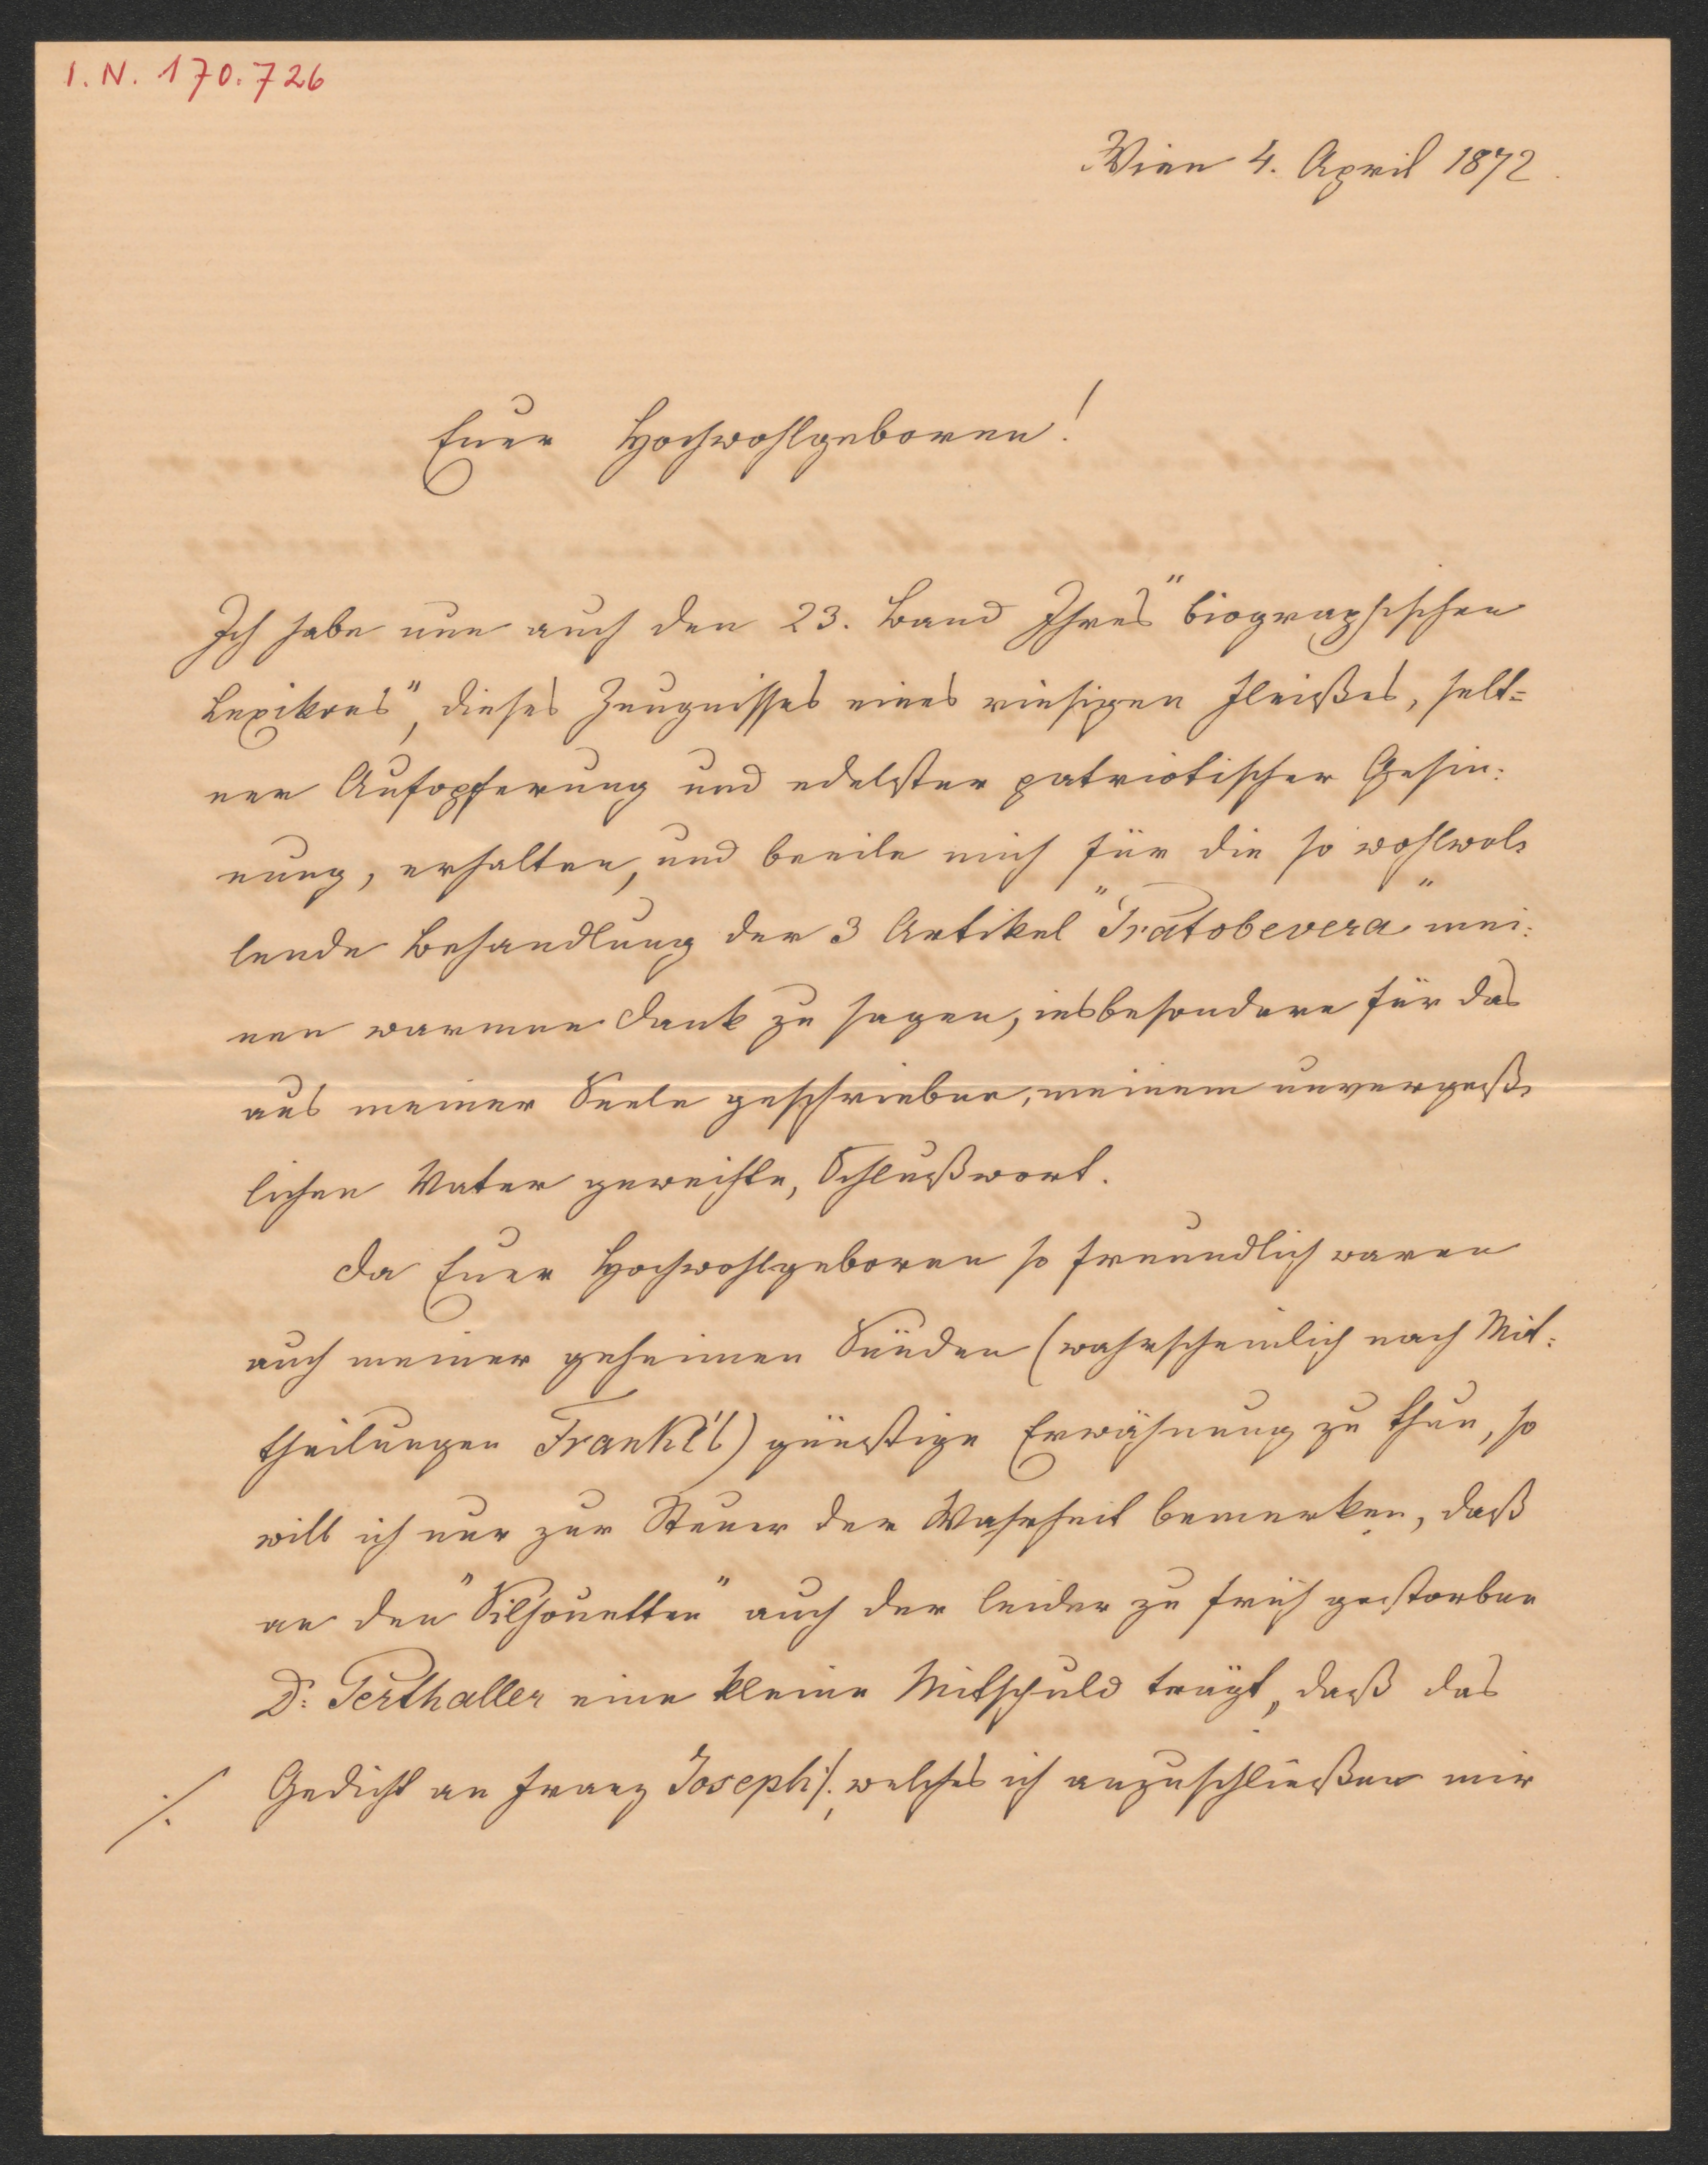 I. N. 170.726
Wien 4. April 1872.
Euer Hochwohlgeboren!
Ich habe nun auch den 23. Band Ihres "biographischen
Lexikons", dieses Zeugnisses eines riesigen Fleißes, selt=
ner Aufopferung und edelster patriotischer Gesin:
nung, erhalten, und beeile mich für die so wohlwol=
lende Behandlung der 3 Artikel "Pratobevera" mei:
nen warmen Dank zu sagen, insbesondere für das
aus meiner Seele geschrieben, meinem unvergeß=
lichen Vater geweihte, Schlußwort.
Da Euer Hochwohlgeboren so freundlich waren
auch meiner geheimen Sünden (wahrscheinlich nach Mit:
theilungen Frankl's) günstige Erwähnung zu thun, so
will ich nur zur Steuer der Wahrheit bemerken, daß
an den "Silhouetten" auch der leider zu früh gestorben
Dr. Perthaller eine kleine Mitschuld trägt, daß das
./. Gedicht an Franz Joseph ./., welches ich anzuschließen mir